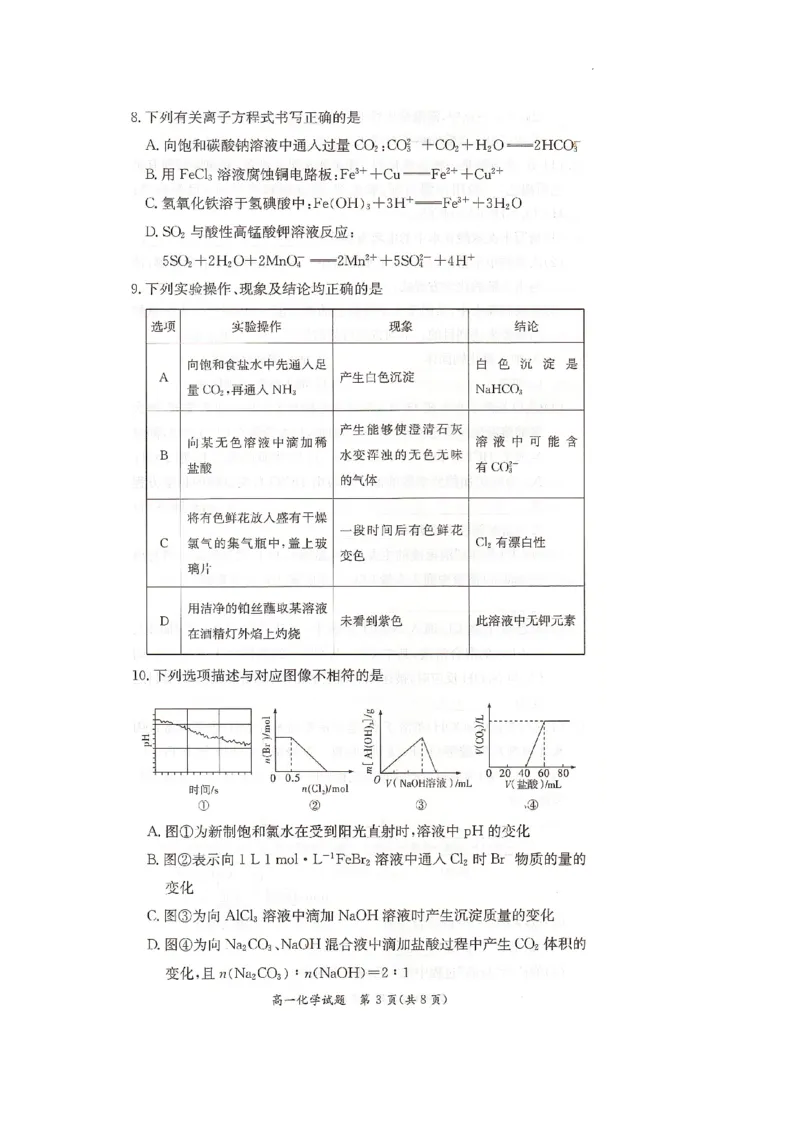 8.下列有关离子方程式书写正确的是
A.向饱和碳酸钠溶液中通入过量CO₂:CO₃²⁻+CO₂+H₂O══2HCO₃⁻
B.用FeCl₃溶液腐蚀铜电路板:Fe³⁺+Cu══Fe²⁺+Cu²⁺
C.氢氧化铁溶于氢碘酸中:Fe(OH)₃+3H⁺══Fe³⁺+3H₂O
D.SO₂与酸性高锰酸钾溶液反应:
5SO₂+2H₂O+2MnO₄⁻══2Mn²⁺+5SO₄²⁻+4H⁺
9.下列实验操作、现象及结论均正确的是
选项 实验操作 现象 结论
A 向饱和食盐水中先通入足量CO₂,再通入NH₃ 产生白色沉淀 白色沉淀是NaHCO₃
B 向某无色溶液中滴加稀盐酸 产生能够使澄清石灰水变浑浊的无色无味的气体 溶液中可能含有CO₃²⁻
C 将有色鲜花放入盛有干燥氯气的集气瓶中,盖上玻璃片 一段时间后有色鲜花变色 Cl₂有漂白性
D 用洁净的铂丝蘸取某溶液在酒精灯外焰上灼烧 未看到紫色 此溶液中无钾元素
10.下列选项描述与对应图像不相符的是
pH 时间/s ①
n(Br⁻)/mol 0 0.5 n(Cl₂)/mol ②
m[Al(OH)₃]/g O V(NaOH溶液)/mL ③
V(CO₂)/L 0 20 40 60 80 V(盐酸)/mL ④
A.图①为新制饱和氯水在受到阳光直射时,溶液中pH的变化
B.图②表示向1 L 1 mol·L⁻¹FeBr₂溶液中通入Cl₂时Br⁻物质的量的
变化
C.图③为向AlCl₃溶液中滴加NaOH溶液时产生沉淀质量的变化
D.图④为向Na₂CO₃、NaOH混合液中滴加盐酸过程中产生CO₂体积的
变化,且n(Na₂CO₃)∶n(NaOH)=2∶1
高一化学试题 第3页(共8页)